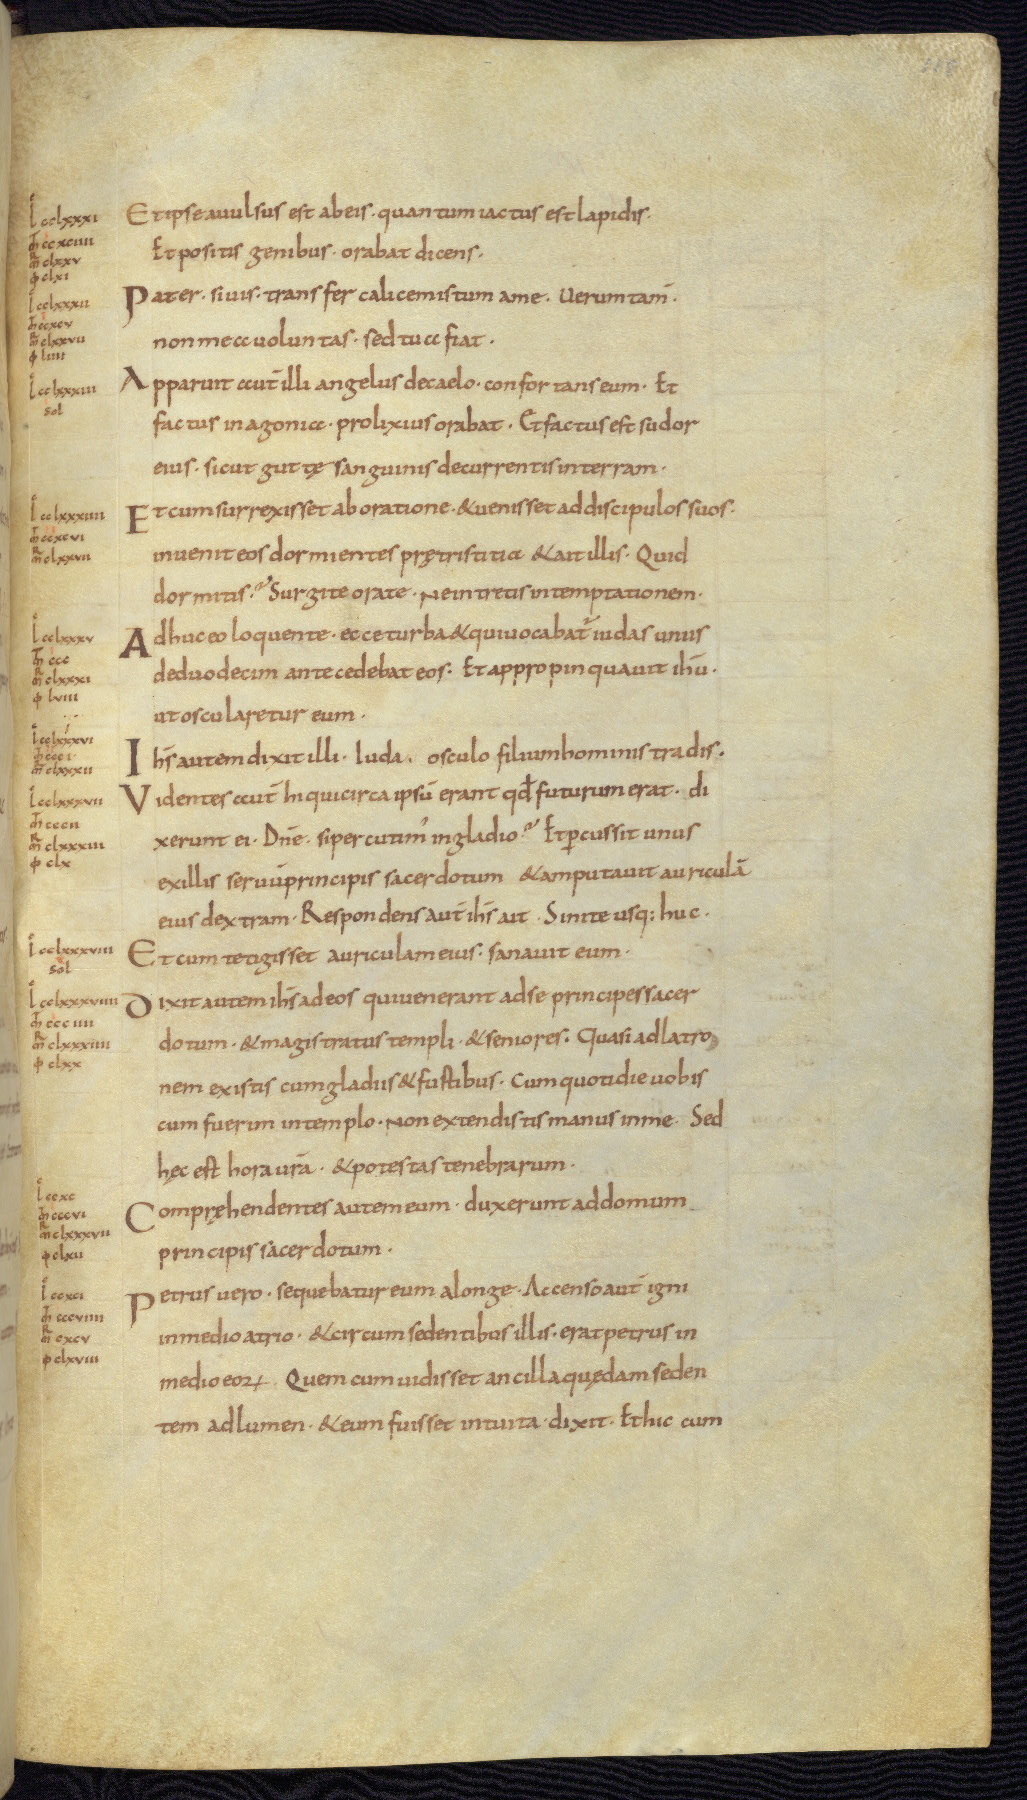 L cclxxxi
m ccxciiii
mr clxxv
io clxi
Et ipse auulsus est ab eis · quantum iactus est lapidis ·
Et positis genibus · orabat dicens ·
L cclxxxii
m ccxcv
mr clxxvii
io liiii
Pater · si uis · transfer calicem istum a me · Uerum tam̄ ·
non mea uoluntas · sed tua fiat ·
L cclxxxiii
sol
Apparuit aut̄ illi angelus de caelo · confortans eum · Et
factus in agonia · prolixius orabat · Et factus est sudor
eius · sicut guttę sanguinis decurrentis in terram ·
L cclxxxiiii
m ccxcvi
mr clxxvii
Et cum surrexisset ab oratione · & uenisset ad discipulos suos ·
inuenit eos dormientes prę tristitia & ait illis · Quid
dormitis? Surgite orate · Ne intretis in temptationem ·
L cclxxxv
m ccc
mr clxxxi
io lviii
Adhuc eo loquente · ecce turba & qui uocabat᷑ iudas unus
de duodecim antecedebat eos · Et appropinquauit ih̄u ·
ut oscularetur eum ·
L cclxxxvi
m ccci
mr clxxxii
Ih̄s autem dixit illi · Iuda · osculo filium hominis tradis ·
L cclxxxvii
m cccii
mr clxxxiii
io clx
Videntes aut̄ hi qui circa ipsū erant qd̄ futurum erat · di
xerunt ei · Dn̄e · si percutim᷒ in gladio? Et ꝑcussit unus
ex illis seruū principis sacerdotum & amputauit auriculā
eius dextram · Respondens aut̄ ih̄s ait · Sinite usq; huc ·
L cclxxxviii
sol
Et cum tetigisset auriculam eius · sanauit eum ·
L cclxxxviiii
m ccciiii
mr clxxxiiii
io clxx
Dixit autem ih̄s ad eos qui uenerant ad se principes sacer
dotum · & magistratus templi · & seniores · Quasi ad latro
nem existis cum gladiis & fustibus · Cum quotidie uobis
cum fuerim in templo · Non extendistis manus in me · Sed
hęc est hora ur̄a · & potestas tenebrarum ·
L ccxc
m cccvi
mr clxxxvii
io clxii
Compręhendentes autem eum · duxerunt ad domum
principis sacerdotum ·
L ccxci
m cccviiii
mr cxcv
io clxviii
Petrus uero · sequebatur eum a longe · Accenso aut̄ igni
in medio atrio · & circumsedentibus illis · erat petrus in
medio eoꝝ Quem cum uidisset ancilla quędam seden
tem ad lumen · & eum fuisset intuita · dixit · Et hic cum